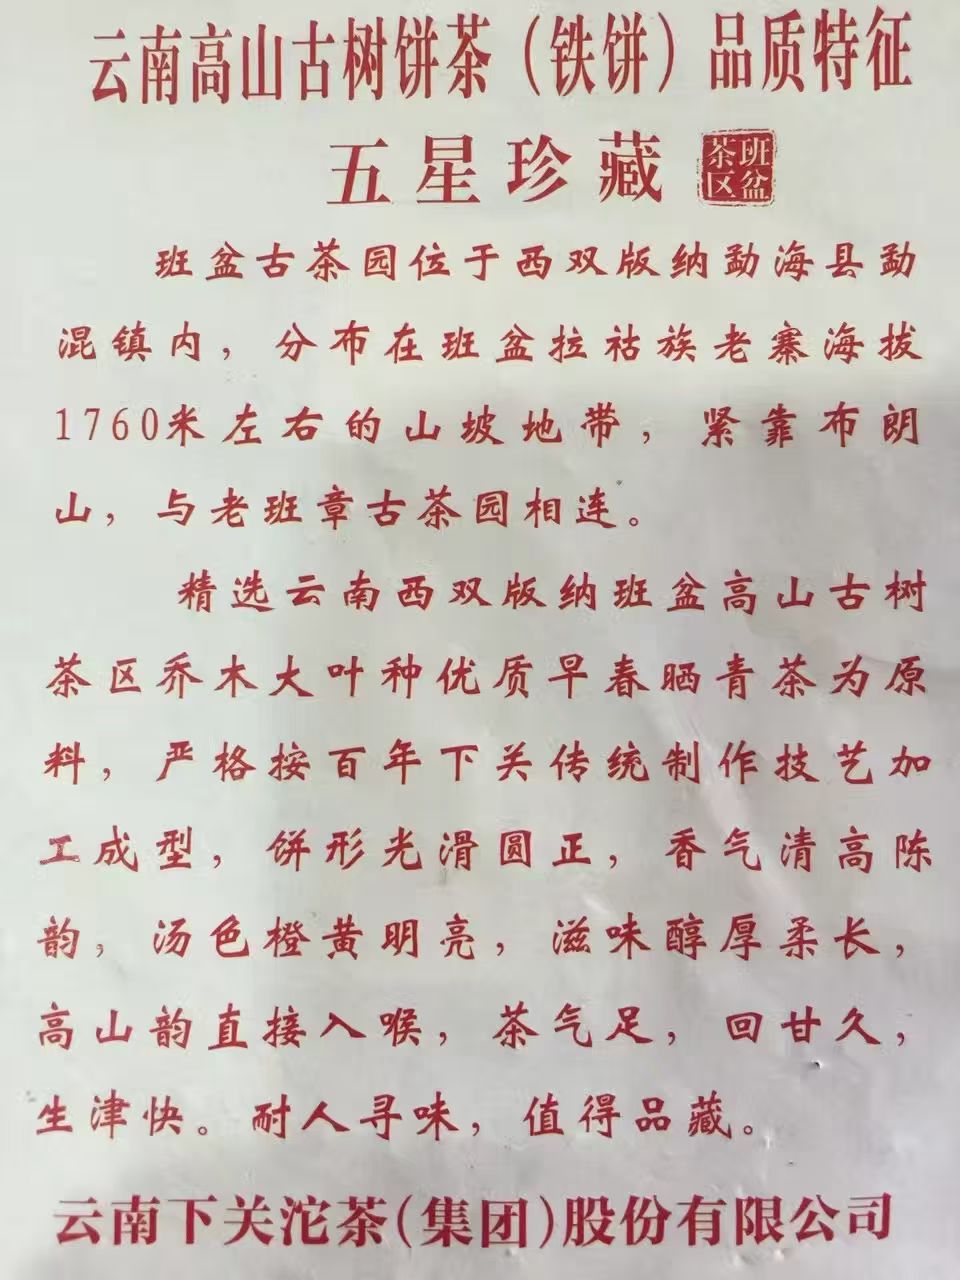 云南高山古树饼茶（铁饼）品质特征
五星珍藏 班盆茶区
班盆古茶园位于西双版纳勐海县勐
混镇内，分布在班盆拉祜族老寨海拔
1760米左右的山坡地带，紧靠布朗
山，与老班章古茶园相连。
精选云南西双版纳班盆高山古树
茶区乔木大叶种优质早春晒青茶为原
料，严格按百年下关传统制作技艺加
工成型，饼形光滑圆正，香气清高陈
韵，汤色橙黄明亮，滋味醇厚柔长，
高山韵直接入喉，茶气足，回甘久，
生津快。耐人寻味，值得品藏。
云南下关沱茶(集团)股份有限公司